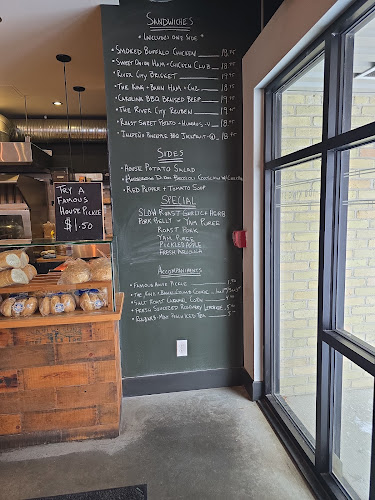 SANDWICHES
* INCLUDES ONE SIDE *
• SMOKED BUFFALO CHICKEN 18.95
• SWEET ONION HAM + CHICKEN CLUB 18
• RIVER CITY BRISKET 19
• THE KING - BAHN HAM +
• CAROLINA BBQ BRAISED BEEF 19
• THE RIVER CITY REUBEN 19
• ROAST SWEET POTATO + HUMMUS - V 18
PINEAPPLE BBQ JACKFRUIT 18
SIDES
• HOUSE POTATO SALAD
BROCCOLI COLESLAW
• RED PEPPER + TOMATO SOUP
SPECIAL
SLOW ROAST GARLIC + HERB
PORK BELLY - YAM PUREE
ROAST PORK
YAM PUREE
PICKLED APPLE
FRESH ARUGULA
ACCOMPANIMENTS
• FAMOUS HOUSE PICKLE 1.50
COOKIE
• SALT ROAST CARAMEL CORN
• FRESH SQUEEZED ROSEMARY LEMONADE
ICED TEA
TRY A
FAMOUS
HOUSE PICKLE
$1.50